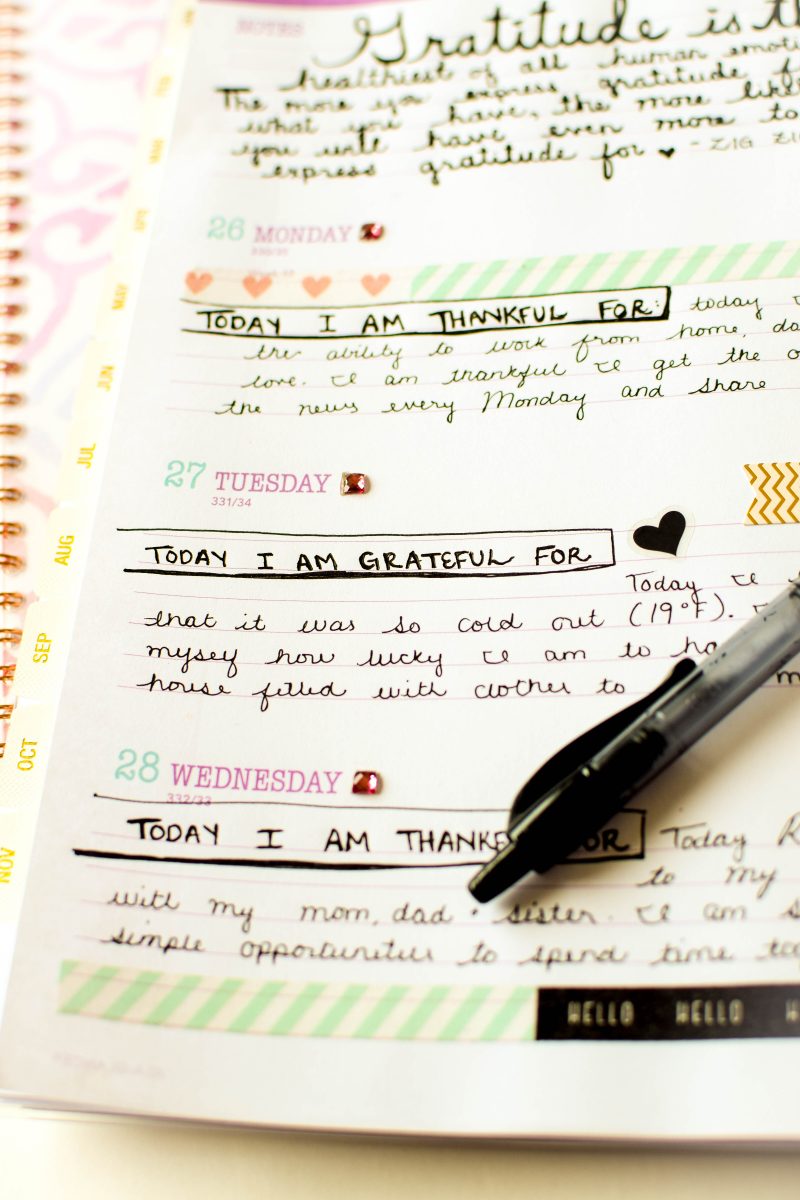 NOTES
Gratitude is
healthiest of all human
The more you express gratitude
what you have, the more
you will have even more to
express gratitude for ♥ - ZIG
26 MONDAY
TODAY I AM THANKFUL FOR: today
the ability to work from home,
love. I am thankful I get the
the news every Monday and share
27 TUESDAY
331/34
TODAY I AM GRATEFUL FOR
Today I
that it was so cold out (19°F).
mysey how lucky I am to
house filled with clothes to
28 WEDNESDAY
332/33
TODAY I AM
Today
to my
with my mom, dad + sister. I am
simple opportunities to spend time
HELLO HELLO
MAY
JUN
JUL
AUG
SEP
OCT
NOV